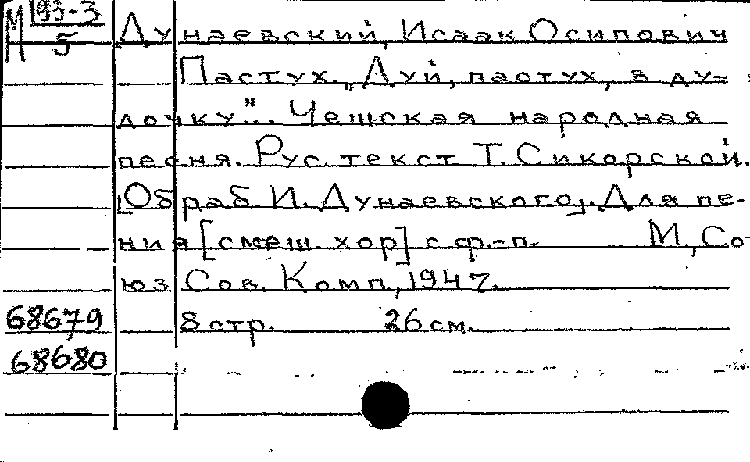 М 93-3
5
Дунаевский, Исаак Осипович
Пастух. „Дуй, пастух, в ду-
дочку"... Чешская народная
песня. Рус. текст Т. Сикорской.
[Обраб И. Дунаевского]. Для пе-
ния [смеш. хор] с ф.-п. М, Со-
юз Сов. Комп, 1947.
68679 8 стр. 26 см.
68680